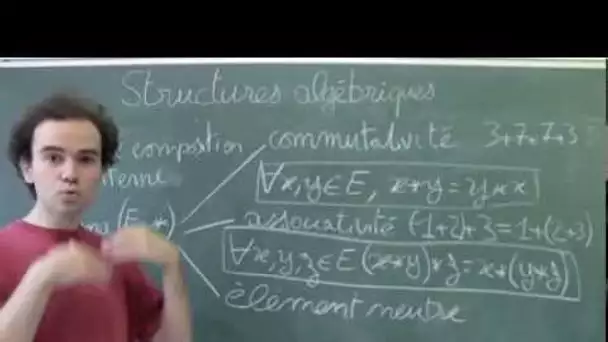 Structures algébriques
composition commutativité 3+7=7+3
interne
∀x,y∈E, x*y=y*x
(E,*) associativité (1+2)+3=1+(2+3)
∀x,y,z∈E (x*y)*z=x*(y*z)
élément neutre